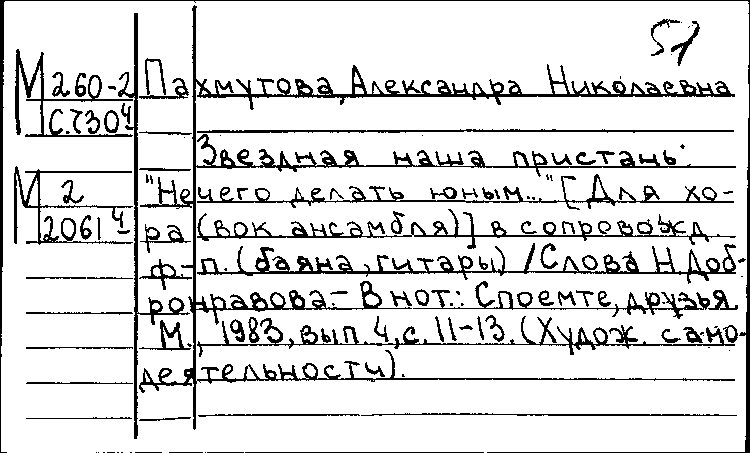 51
М 260-2 Пахмутова, Александра Николаевна
С.730ч
Звездная наша пристань:
М 2 "Нечего делать юным..." [Для хо-
2061ч ра (вок ансамбля)] в сопровожд.
ф-п. (баяна, гитары) / Слова Н. Доб-
ронравова. - В нот.: Споемте, друзья.
М., 1983, вып. 4, с. 11-13. (Худож. само-
деятельности).